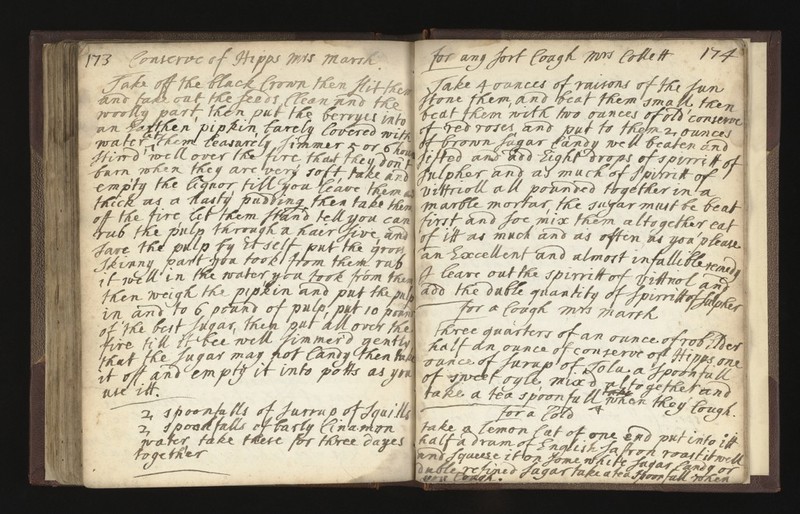 173 Conserve of Hipps Mrs Marsh.
Take off the black Crown then slit them
and take out the seeds Clean, and the
woolly part, then put the berryes into
an Earthen pipkin, barely Covered with
water, let them leasurely simmer 5 or 6 hours
stirr'd well over the fire, that they don't
burn when they are very soft take and
empty the liquor till you leave them as
thick as a hasty pudding then take them
off the fire let them stand tell you can
rub the pulp through a hair sive, and
save the pulp by it self put the gross
skinny part you took from them rub
it well in the water you took from them
then weigh the pipkin and put the pulp
in and to 6 pound of pulp, put 10 pound
of the best sugar, then put all over the
fire till it bee well simmer'd gently
that the sugar may not Candy then take
it off and empty it into potts as you
use itt.
2 spoonfulls of surrup of squills
2 spoonfulls of barly Cinamon
water take these for three dayes
together
for any sort Cough Mrs Collett 174
Take 4 ounces of raisons of the sun
stone them, and beat them small then
beat them with two ounces of old conserve
of red roses and put to them 2 ounces
of brown sugar Candy well beaten and
sifted and add Eight drops of spirritt of
sulpher and as much of spirritt of
vittrioll all pounded together in a
marble mortar, the sugar must be beat
first and soe mix them altogether eat
of itt as much and as often as you please
an Excellent and almost infallible remedy
I leave out the spirritt of vittriol and
add the duble quantity of spirritt of sulpher
for a Cough Mrs Marsh
three quarters of an ounce of rob: Der
half an ounce of conserve of Hipps one
ounce of surup of Tolu a spoonfull
of sweet oyle, mix'd altogether and
take a tea spoonfull when they Cough.
for a Cold
take a lemon Cut of one end put into itt
half a dram of English safron roast it well
and squeese it on some white sugar Candy or
duble refined sugar take a tea spoonfull when
you Cough.